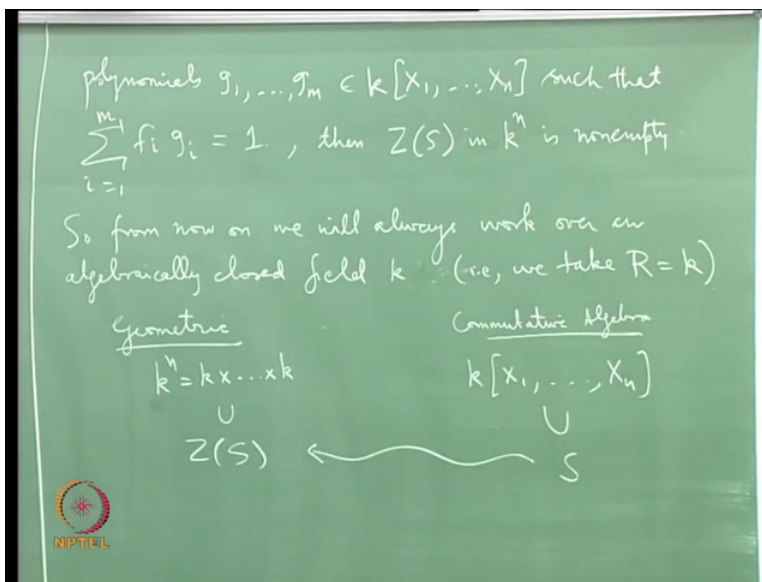 polynomials g₁, ..., gₘ ∈ k[X₁, ..., Xₙ] such that
∑ᵢ₌₁ᵐ fᵢ gᵢ = 1., then Z(S) in kⁿ is nonempty
So from now on we will always work over an
algebraically closed field k (i.e, we take R = k)
Geometric Commutative Algebra
kⁿ = k x ... x k k[X₁, ..., Xₙ]
∪ ∪
Z(S) ← S
NPTEL